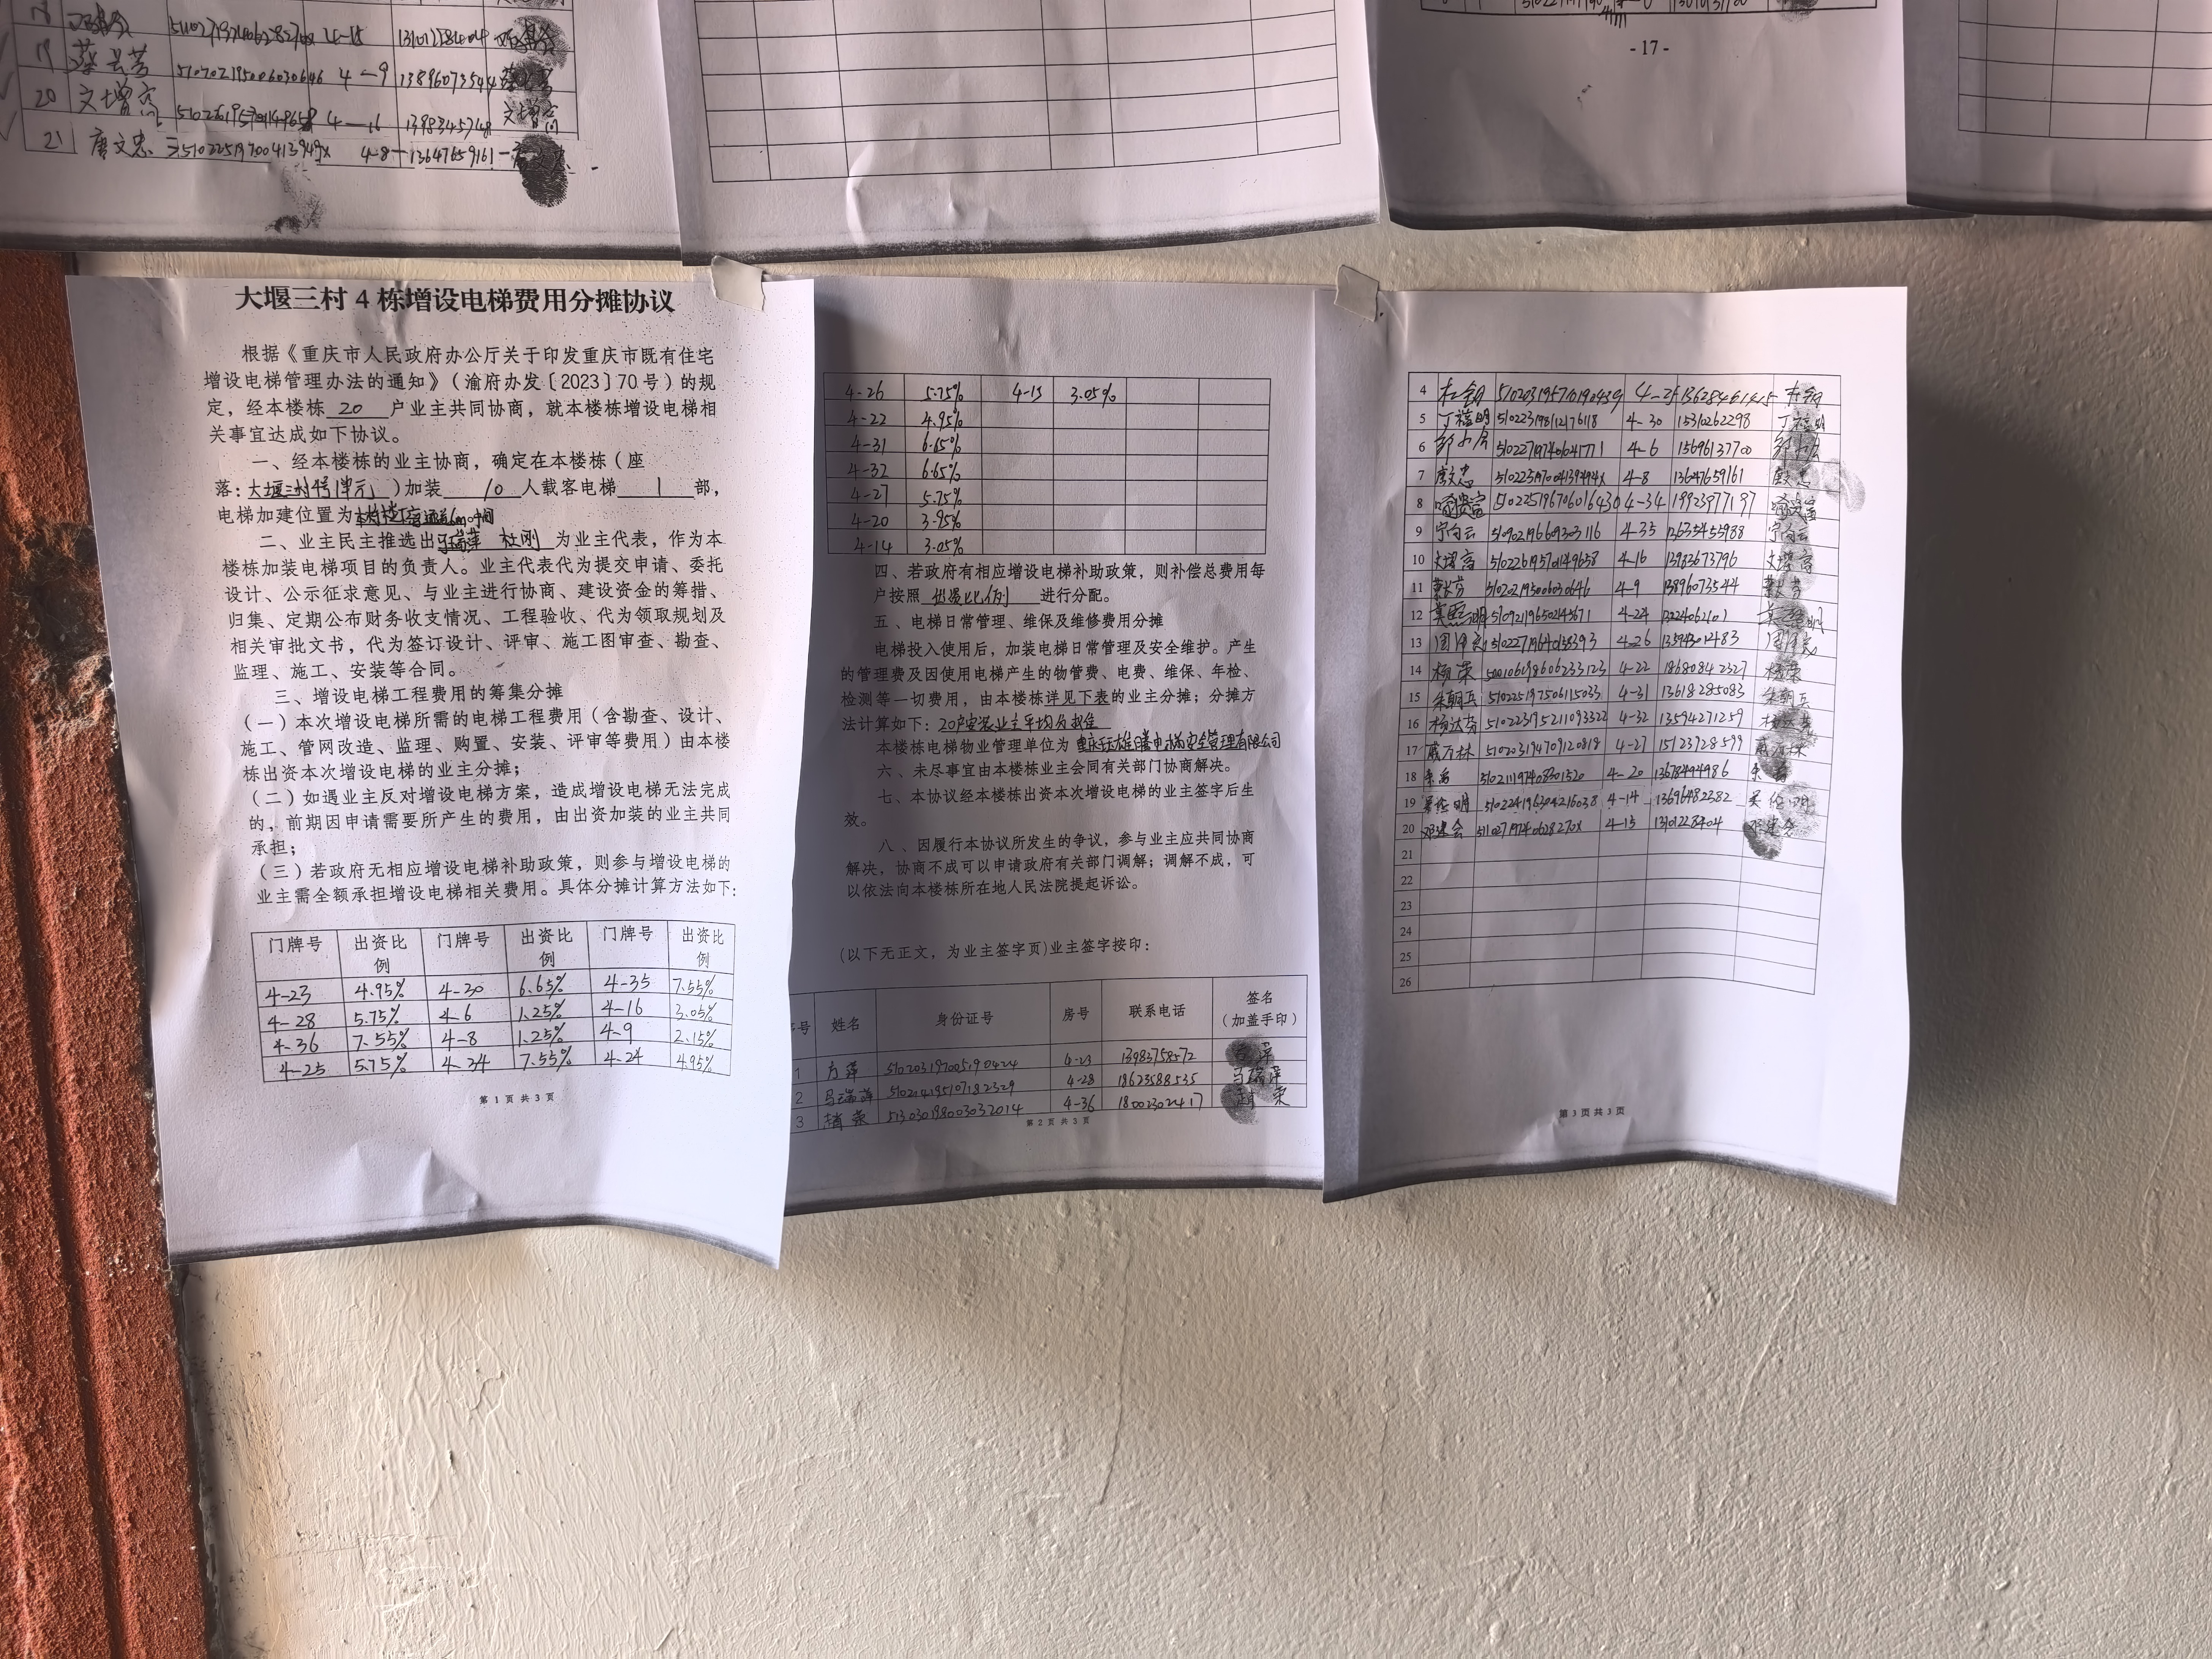 19
20 文增富 4-16
21 唐文忠 4-8 13647659161
- 17 -
大堰三村 4 栋增设电梯费用分摊协议
根据《重庆市人民政府办公厅关于印发重庆市既有住宅
增设电梯管理办法的通知》（渝府办发〔2023〕70 号）的规
定，经本楼栋 20 户业主共同协商，就本楼栋增设电梯相
关事宜达成如下协议。
一、经本楼栋的业主协商，确定在本楼栋（座
落：大堰三村4号1单元）加装 10 人载客电梯 1 部，
电梯加建位置为
二、业主民主推选出 马瑞萍 杜刚 为业主代表，作为本
楼栋加装电梯项目的负责人。业主代表代为提交申请、委托
设计、公示征求意见、与业主进行协商、建设资金的筹措、
归集、定期公布财务收支情况、工程验收、代为领取规划及
相关审批文书，代为签订设计、评审、施工图审查、勘查、
监理、施工、安装等合同。
三、增设电梯工程费用的筹集分摊
（一）本次增设电梯所需的电梯工程费用（含勘查、设计、
施工、管网改造、监理、购置、安装、评审等费用）由本楼
栋出资本次增设电梯的业主分摊；
（二）如遇业主反对增设电梯方案，造成增设电梯无法完成
的，前期因申请需要所产生的费用，由出资加装的业主共同
承担；
（三）若政府无相应增设电梯补助政策，则参与增设电梯的
业主需全额承担增设电梯相关费用。具体分摊计算方法如下：
门牌号 出资比例 门牌号 出资比例 门牌号 出资比例
4-23 4.95% 4-30 6.65% 4-35 7.55%
4-28 5.75% 4-6 1.25% 4-16 3.05%
4-36 7.55% 4-8 1.25% 4-9 2.15%
4-25 5.75% 4-34 7.55% 4-24 4.95%
第 1 页 共 3 页
4-26 5.75% 4-15 3.05%
4-22 4.95%
4-31 6.65%
4-32 6.65%
4-27 5.75%
4-20 3.95%
4-14 3.05%
四、若政府有相应增设电梯补助政策，则补偿总费用每
户按照 出资比例 进行分配。
五、电梯日常管理、维保及维修费用分摊
电梯投入使用后，加装电梯日常管理及安全维护。产生
的管理费及因使用电梯产生的物管费、电费、维保、年检、
检测等一切费用，由本楼栋详见下表的业主分摊；分摊方
法计算如下：20户安装业主平均分摊
本楼栋电梯物业管理单位为
六、未尽事宜由本楼栋业主会同有关部门协商解决。
七、本协议经本楼栋出资本次增设电梯的业主签字后生
效。
八、因履行本协议所发生的争议，参与业主应共同协商
解决，协商不成可以申请政府有关部门调解；调解不成，可
以依法向本楼栋所在地人民法院提起诉讼。
（以下无正文，为业主签字页）业主签字按印：
号 姓名 身份证号 房号 联系电话 签名（加盖手印）
1 方萍 510203197005190424 4-23 13983758572
2 马瑞萍 510214195107182329 4-28 18623588535 马瑞萍
3 赵荣 513030198003032014 4-36 18002302417
第 2 页 共 3 页
4 杜钢 510203195710190439 4-25 杜钢
5 丁福明 510223198112176118 4-30 15310262298
6 邹小彦 510227197406041771 4-6 15696137700
7 唐文忠 4-8 13647659161
8 510225196706016430 4-34 19923977197
9 宁向云 510902196609303116 4-35 宁向云
10 文增富 510226195701149658 4-16 13983673796
11 510202195006030646 4-9 13896073544
12 4-24
13 510227196410158393 4-26 13594301483
14 杨荣 500106198606233123 4-22 18680842327 杨荣
15 朱朝兵 510225197506115033 4-31 13618285083
16 杨达芬 510223195211093322 4-32 13594271259
17 戚万林 510203194709120818 4-27 15123928599
18 510211197408301520 4-20 13678494986
19 吴伦明 510224196304216038 4-14 13696482382 吴伦明
20 邓建会 51102719740628270X 4-15
21
22
23
24
25
26
第 3 页 共 3 页